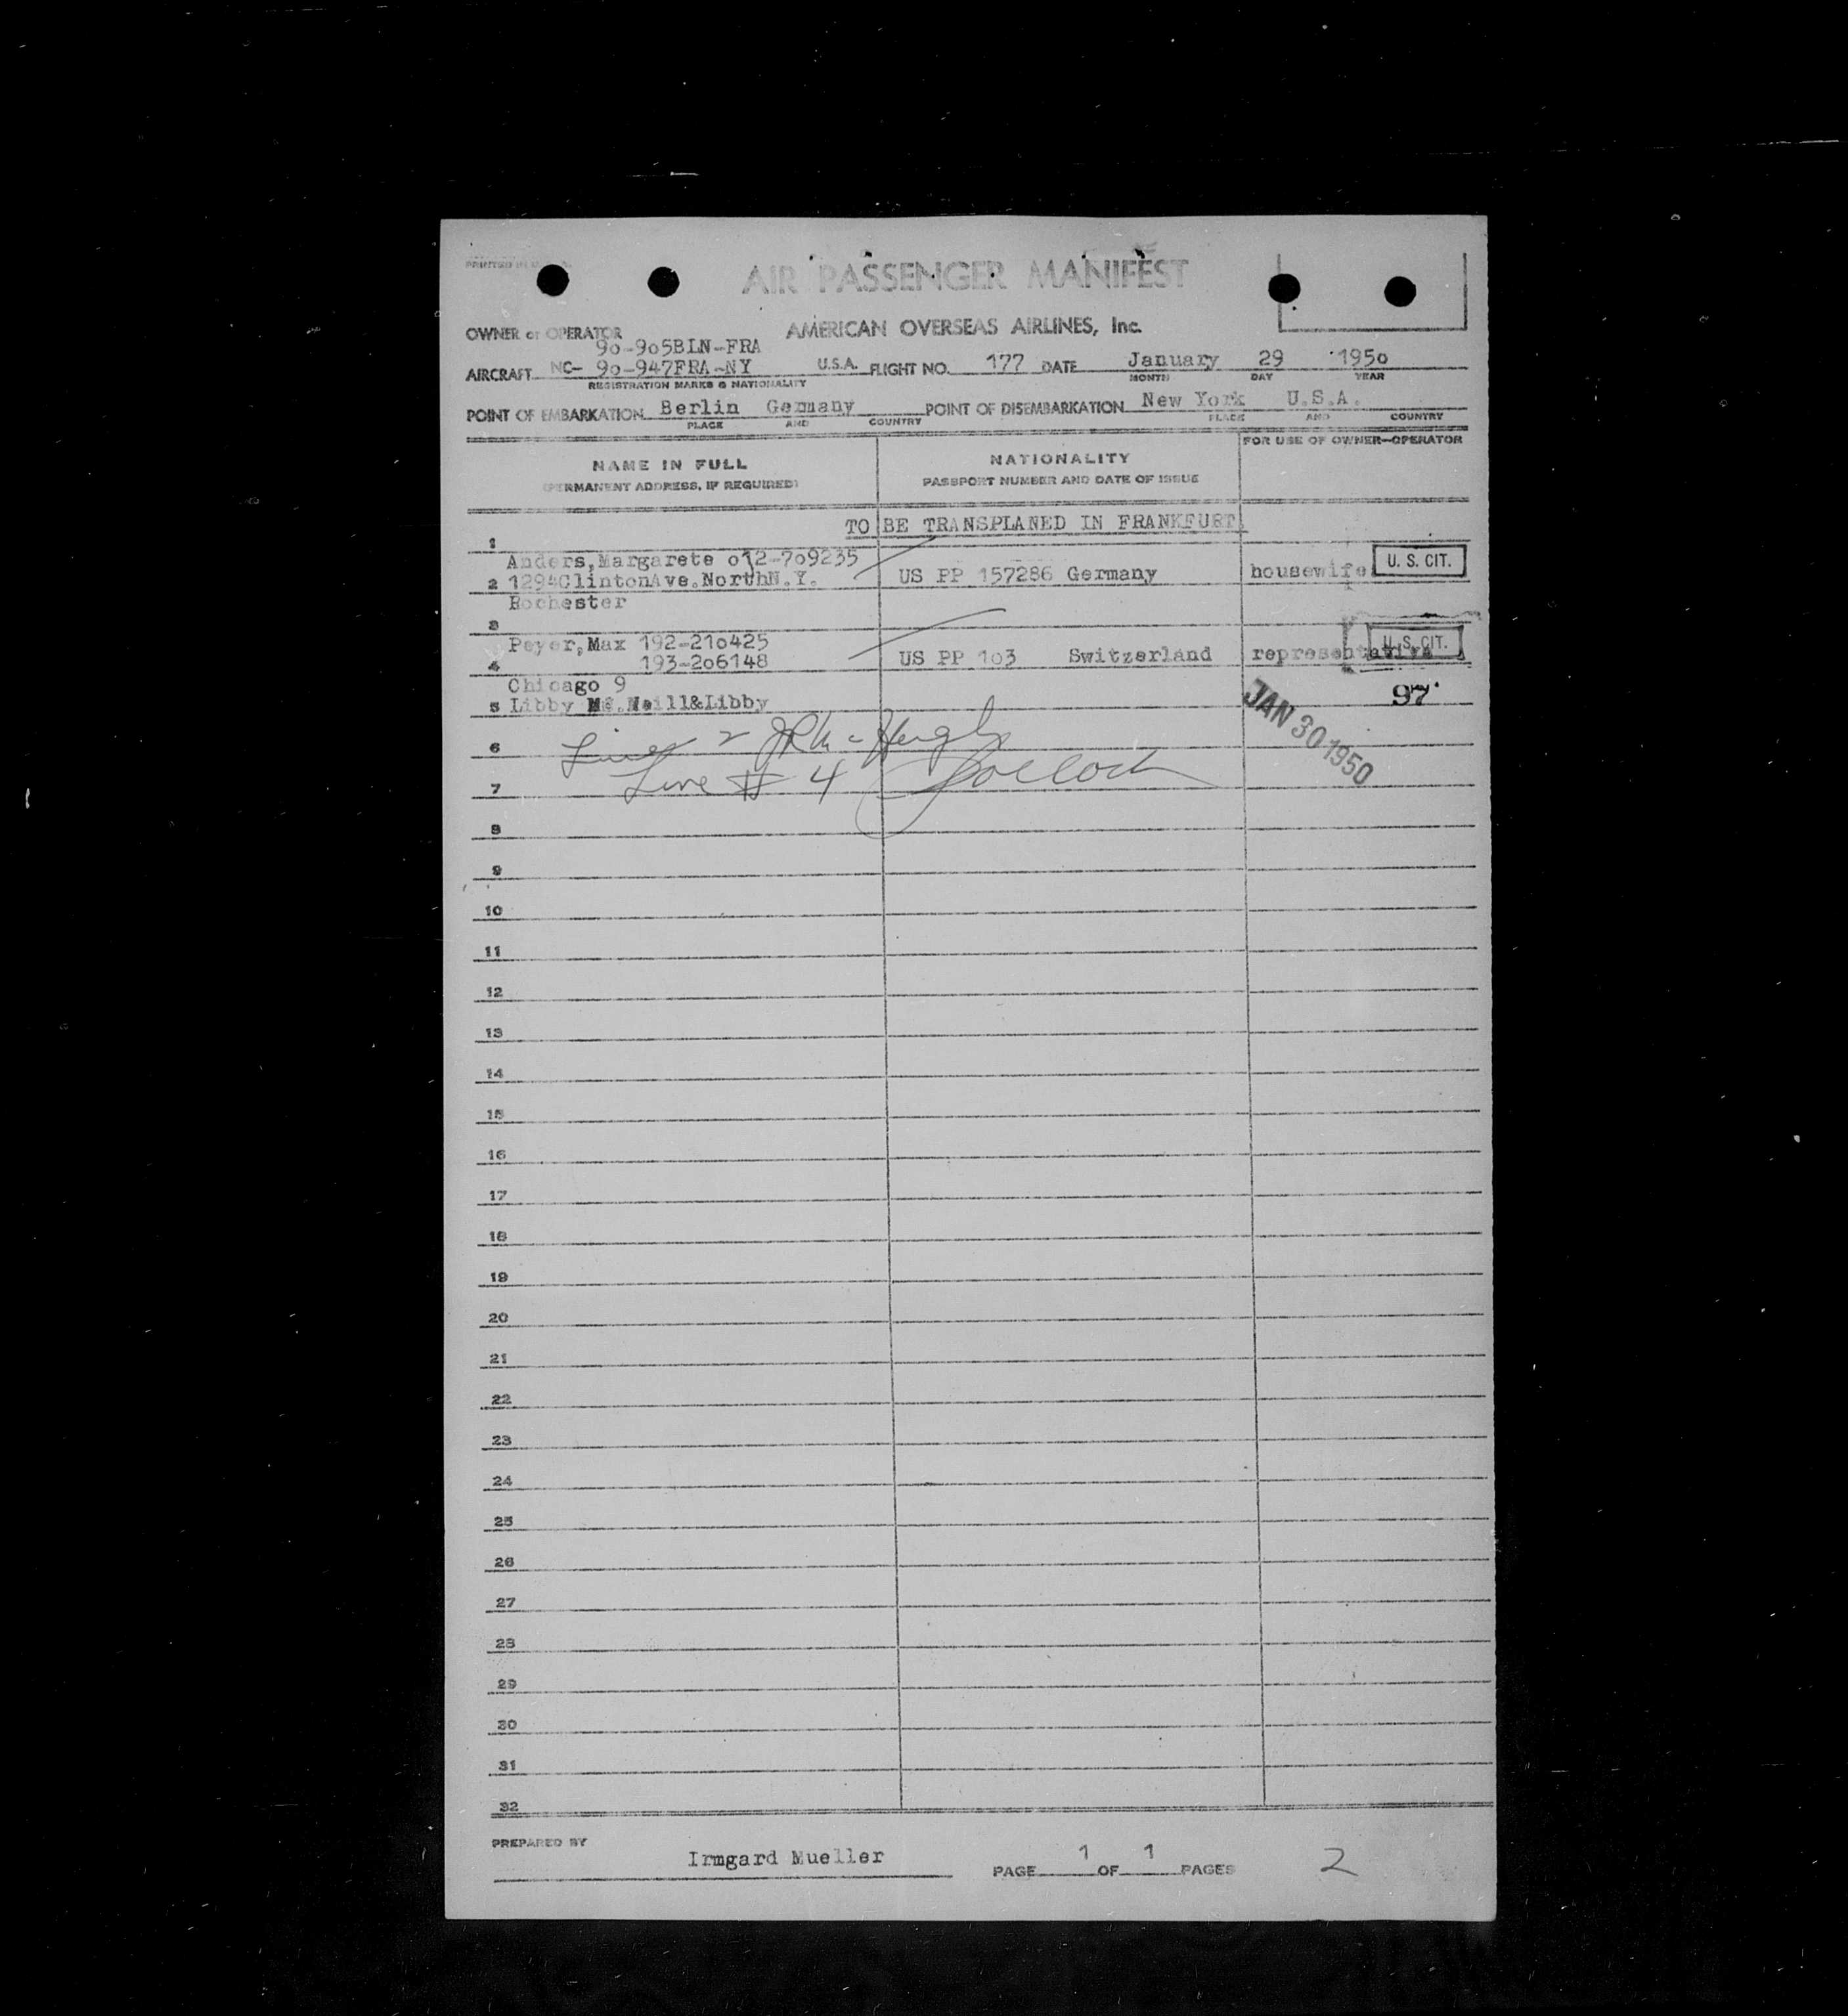 AIR PASSENGER MANIFEST
OWNER or OPERATOR AMERICAN OVERSEAS AIRLINES, Inc.
90-905BLN-FRA
AIRCRAFT NC- 90-947FRA-NY U.S.A. FLIGHT NO. 177 DATE January 29 1950
REGISTRATION MARKS & NATIONALITY MONTH DAY YEAR
POINT OF EMBARKATION Berlin Germany POINT OF DISEMBARKATION New York U.S.A.
PLACE AND COUNTRY PLACE AND COUNTRY
FOR USE OF OWNER—OPERATOR
NAME IN FULL NATIONALITY
(PERMANENT ADDRESS, IF REQUIRED) PASSPORT NUMBER AND DATE OF ISSUE
TO BE TRANSPLANED IN FRANKFURT.
1
Anders,Margarete o12-7o9235 U. S. CIT.
2 1294ClintonAve.NorthN.Y. US PP 157286 Germany housewife
Rochester
3
Peyer,Max 192-21o425 U. S. CIT.
4 193-2o6148 US PP 1o3 Switzerland representative
Chicago 9 97
5 Libby Mc.Neill&Libby
JAN 30 1950
6 Line 2
7 Line # 4
8
9
10
11
12
13
14
15
16
17
18
19
20
21
22
23
24
25
26
27
28
29
30
31
32
PREPARED BY
Irmgard Mueller PAGE 1 OF 1 PAGES 2